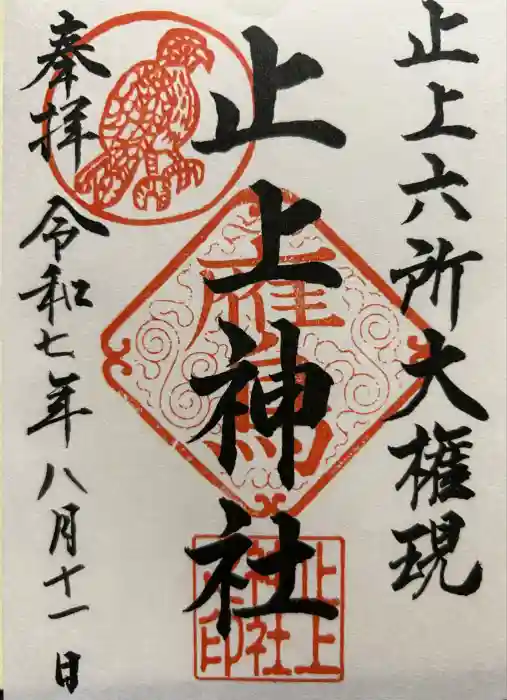 止上六所大権現
止上神社
奉拝
令和七年八月十一日
鷹
止上
神社
之印